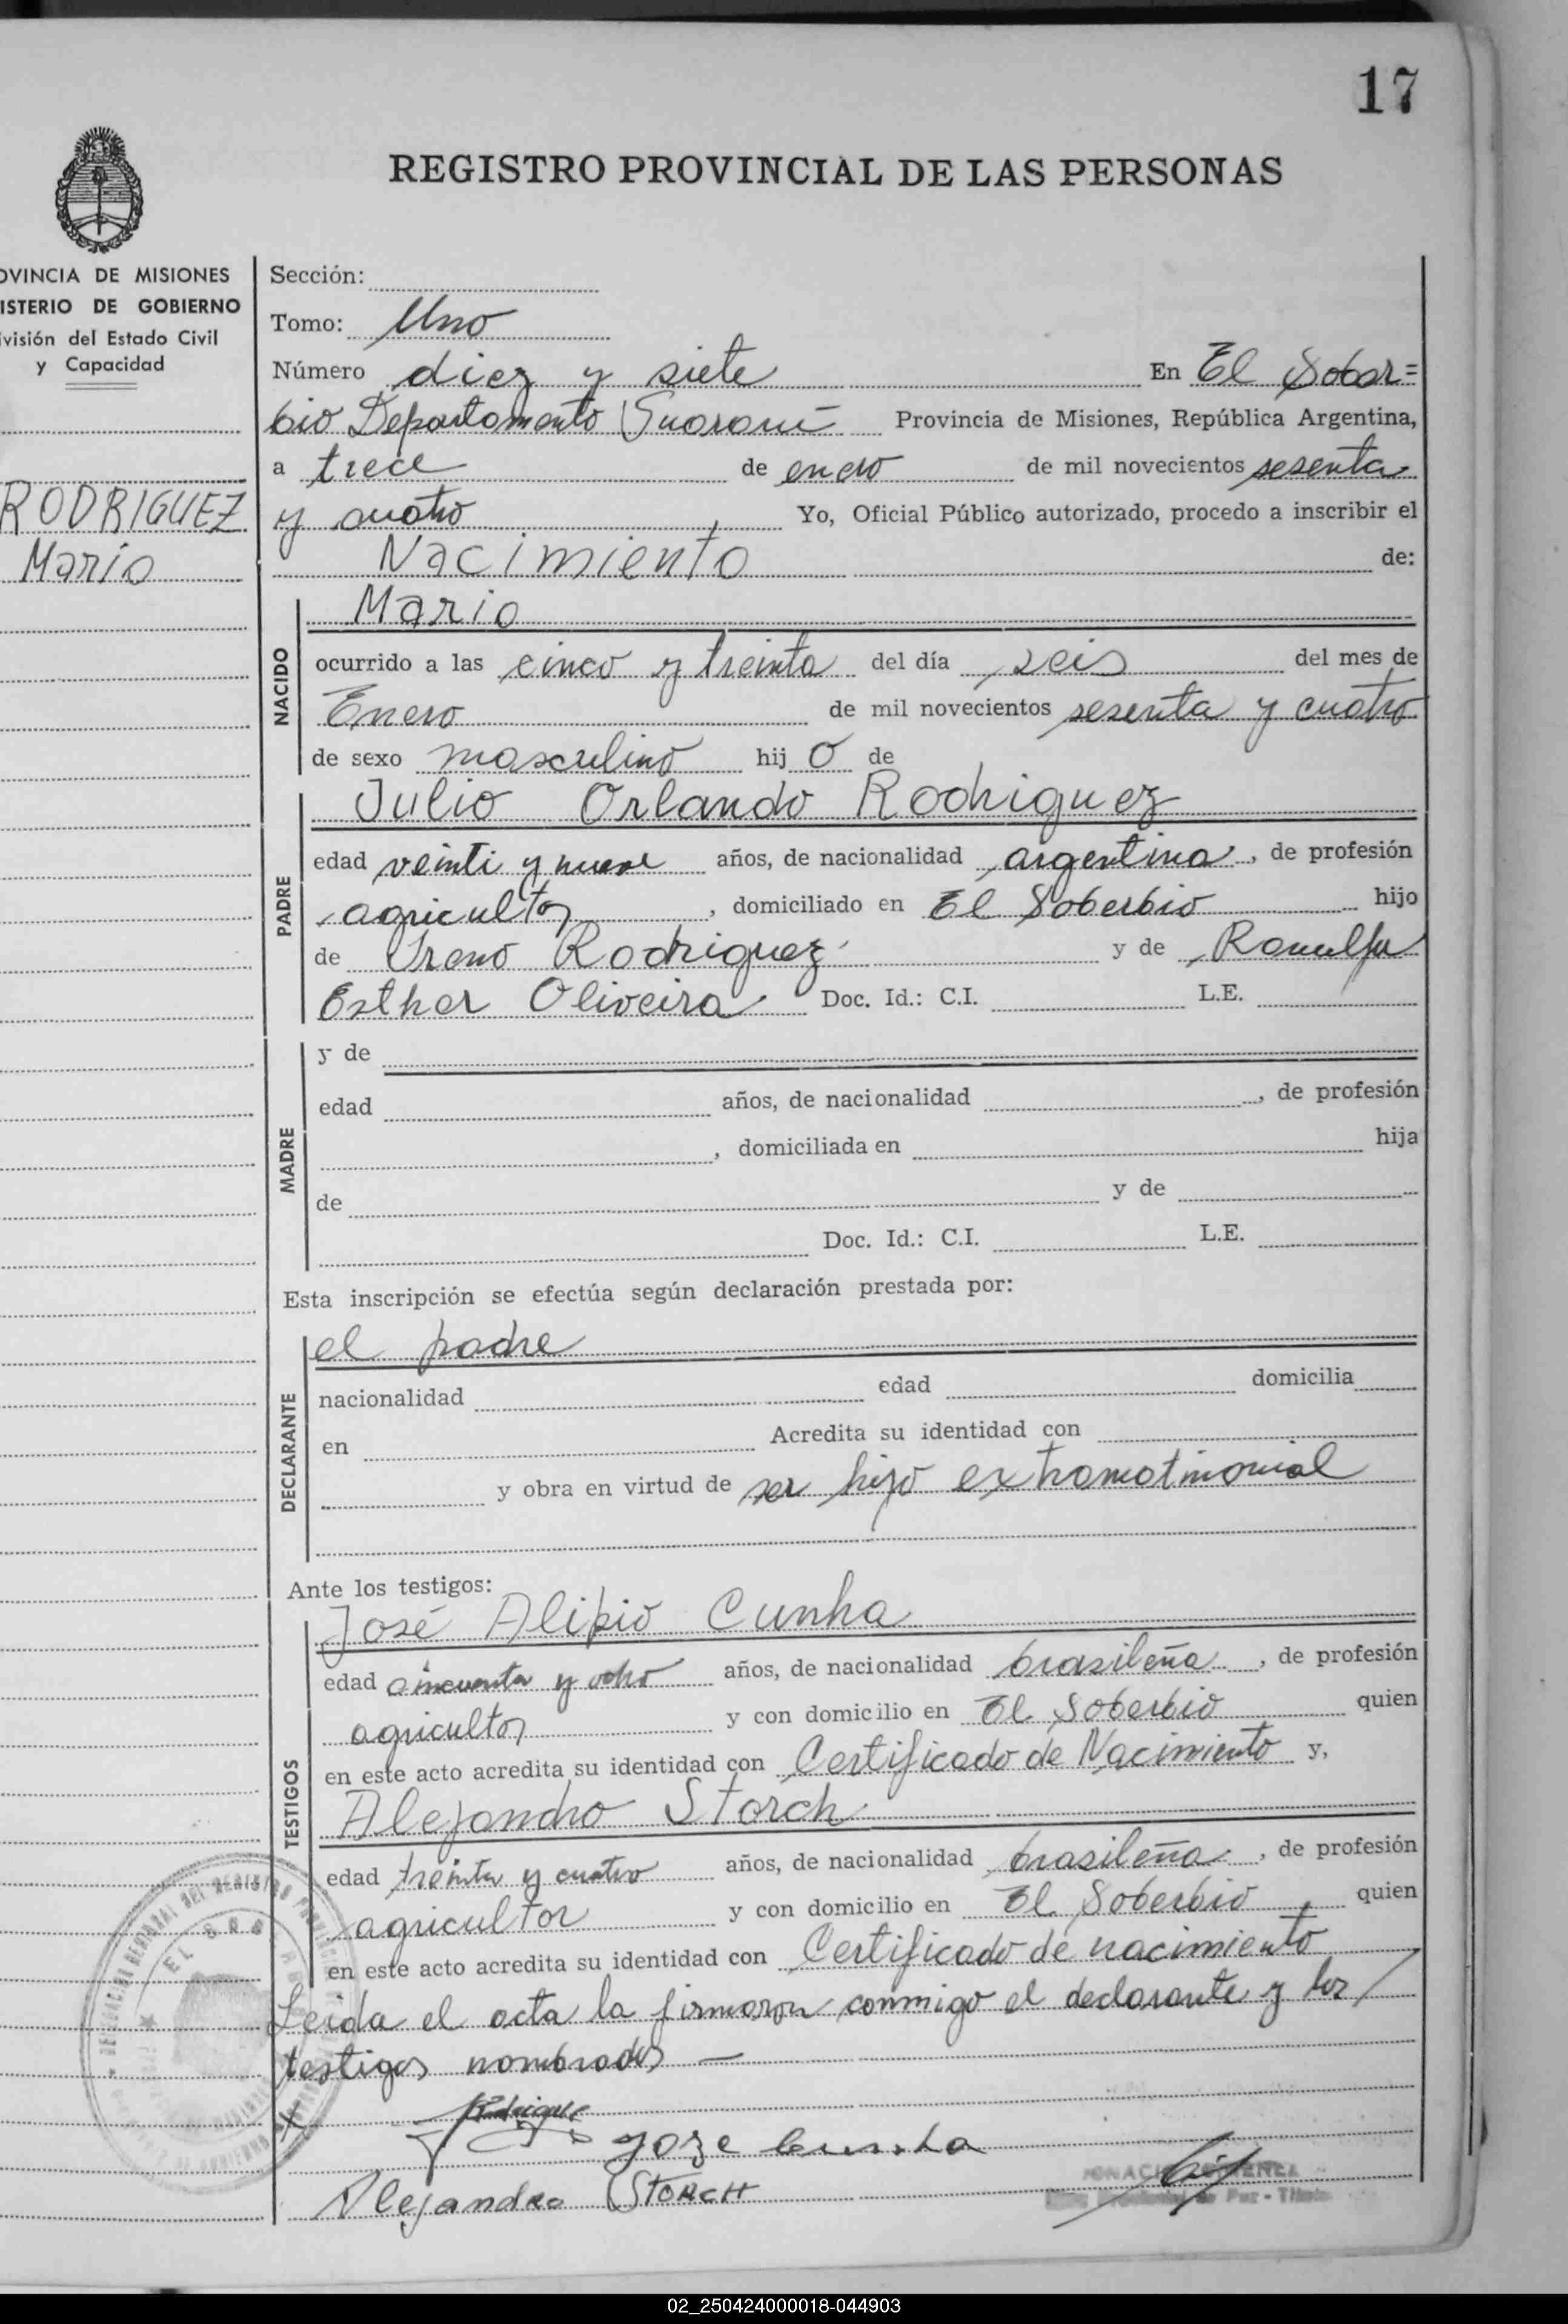 17
REGISTRO PROVINCIAL DE LAS PERSONAS
OVINCIA DE MISIONES
ISTERIO DE GOBIERNO
ivisión del Estado Civil
y Capacidad
RODRIGUEZ
Mario
Sección:
Tomo: Uno
Número diez y siete En El Sober=
bio Departamento Guaraní Provincia de Misiones, República Argentina,
a trece de enero de mil novecientos sesenta
y cuatro, Yo, Oficial Público autorizado, procedo a inscribir el
Nacimiento de:
NACIDO
Mario
ocurrido a las cinco y treinta del día seis del mes de
Enero de mil novecientos sesenta y cuatro
de sexo masculino hijo de
PADRE
Julio Orlando Rodriguez
edad veinti y nueve años, de nacionalidad argentina, de profesión
agricultor, domiciliado en El Soberbio hijo
de Ireno Rodriguez y de Romulfa
Esther Oliveira Doc. Id.: C.I. L.E.
MADRE
y de
edad años, de nacionalidad , de profesión
, domiciliada en hija
de y de
Doc. Id.: C.I. L.E.
Esta inscripción se efectúa según declaración prestada por:
DECLARANTE
el padre
nacionalidad edad domicilia
en Acredita su identidad con
y obra en virtud de ser hijo extramatrimonial
Ante los testigos:
TESTIGOS
José Alipio Cunha
edad cincuenta y ocho años, de nacionalidad brasileña, de profesión
agricultor y con domicilio en El Soberbio quien
en este acto acredita su identidad con Certificado de Nacimiento y,
Alejandro Storch
edad treinta y cuatro años, de nacionalidad brasileña, de profesión
agricultor y con domicilio en El Soberbio quien
en este acto acredita su identidad con Certificado de nacimiento
Leida el acta la firmaron conmigo el declarante y los
testigos nombrados —
X Rodrigue
Joze Cunha
Alejandro STORCH
02_250424000018-044903